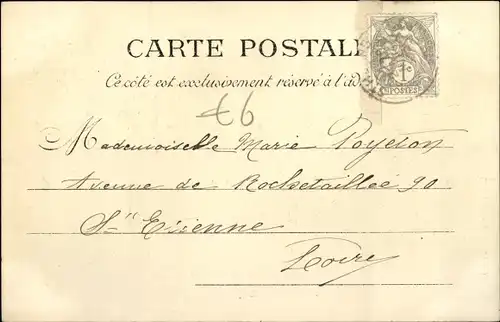 CARTE POSTALE
Ce côté est exclusivement réservé à l'ad
1c
POSTES
€6
Mademoiselle Marie Poyeton
Avenue de Rochetaillée 90
St Etienne
Loire